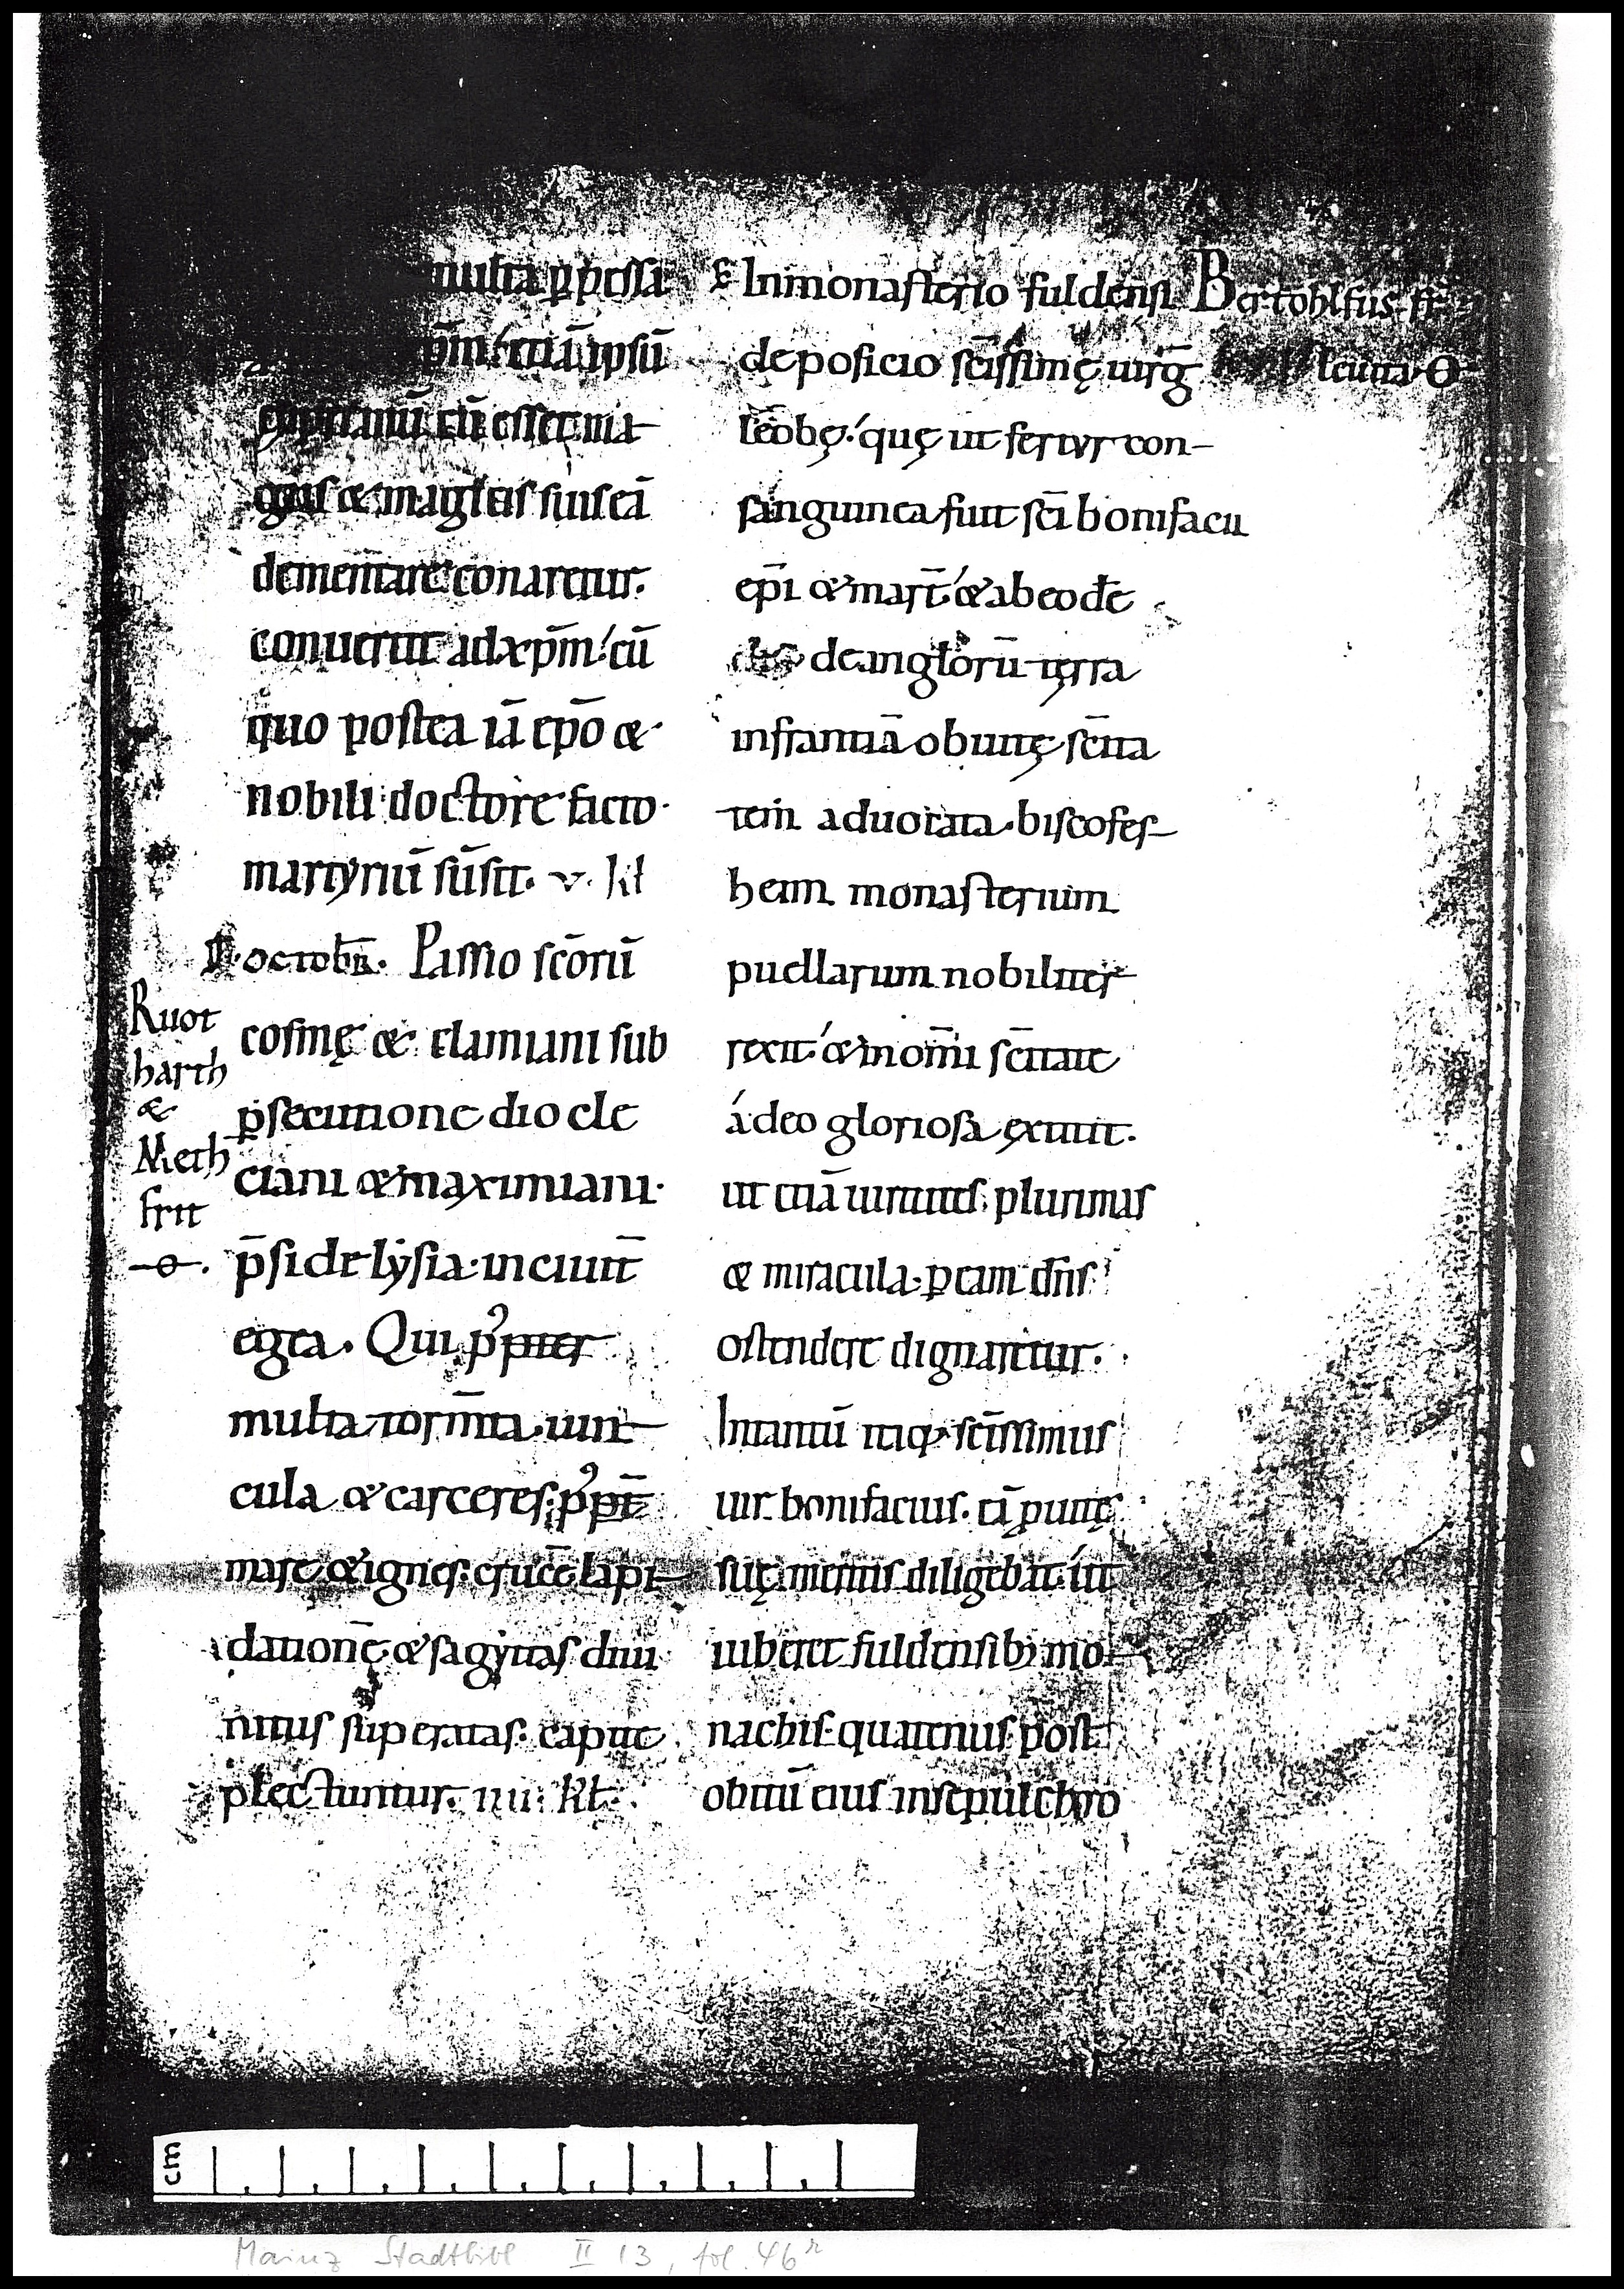 multa ꝑpessa
xp̄m. &iā ipsū
cyprianū cū esset ma
gus & magicis suis eā
dementare conaretur.
conuertit ad xp̄m. cū
quo postea iā ep̄o &
nobili doctore facto.
martyriū sūsit. v. kł
octobr̄. Passio sc̄orū
cosmę & damiani sub
ꝑsecutione diocle
ciani & maximiani.
p̄side lẏsia. in ciuit̄
egea. Qui p⁹
multa torm̄ta. uin
cula & carceres. p⁹
mare & ignes. cruce lapi
datione & sagyttas diui
nitus supęratas. capite
plectuntur. iiii. kł.
Ruot
harth
&
Meth
frit
-o-.
In monasterio fuldensi
deposicio sc̄issimę uirḡ
leobę. quę ut fertvr con-
sanguinea fuit sc̄i bonifacii
ep̄i & mart̄. & ab eodē
de anglorū terra
in frantiā ob uitę sc̄ita
tem aduocata. biscofes
heim monasterium
puellarum nobiliter
rexit. & in om̄i sc̄itate
ádeo gloriosa extitit.
ut &iā uirtutes plurimas
& miracula. ꝑ eam dn̄s
ostendere dignaretur.
Intantū itaq; sc̄issimus
uir bonifacius. eā ꝑ uitę
suę meritis diligebat. ut
iuberet fuldensib; mo
nachis. quatenus post
obitū eius in sepulchro
Bertohlfus. fr̄
leuita. O
cm
Mainz Stadtbibl II 13, fol. 46ʳ